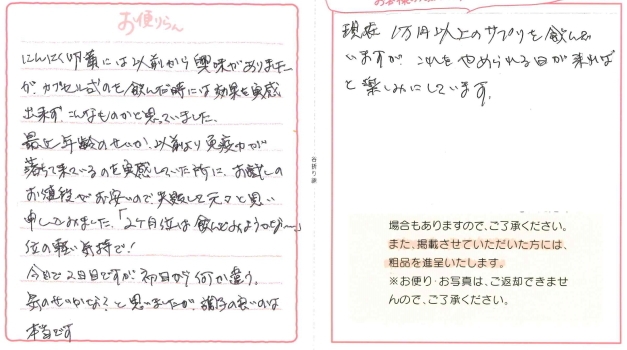 お便りらん
にんにく卵黄には以前から興味がありました
が、カプセル式のを飲んだ時には効果を実感
出来ず、こんなものかと思っていました。
最近年齢のせいか、以前より免疫力が
落ちて来ているのを実感していた所に、お試しの
お値段がお安いので失敗して元々と思い
申してみました。「2ヶ月位は飲んでみようかな〜」
位の軽い気持で!
今日で2日目ですが初日から何か違う。
気のせいかな?と思いましたが、調子の良いのは
本当です
谷折り線
現在 1万円以上のサプリを飲んで
いますが、これをやめられる日が来れば
と楽しみにしています。
場合もありますので、ご了承ください。
また、掲載させていただいた方には、
粗品を進呈いたします。
※お便り・お写真は、ご返却できませ
んので、ご了承ください。